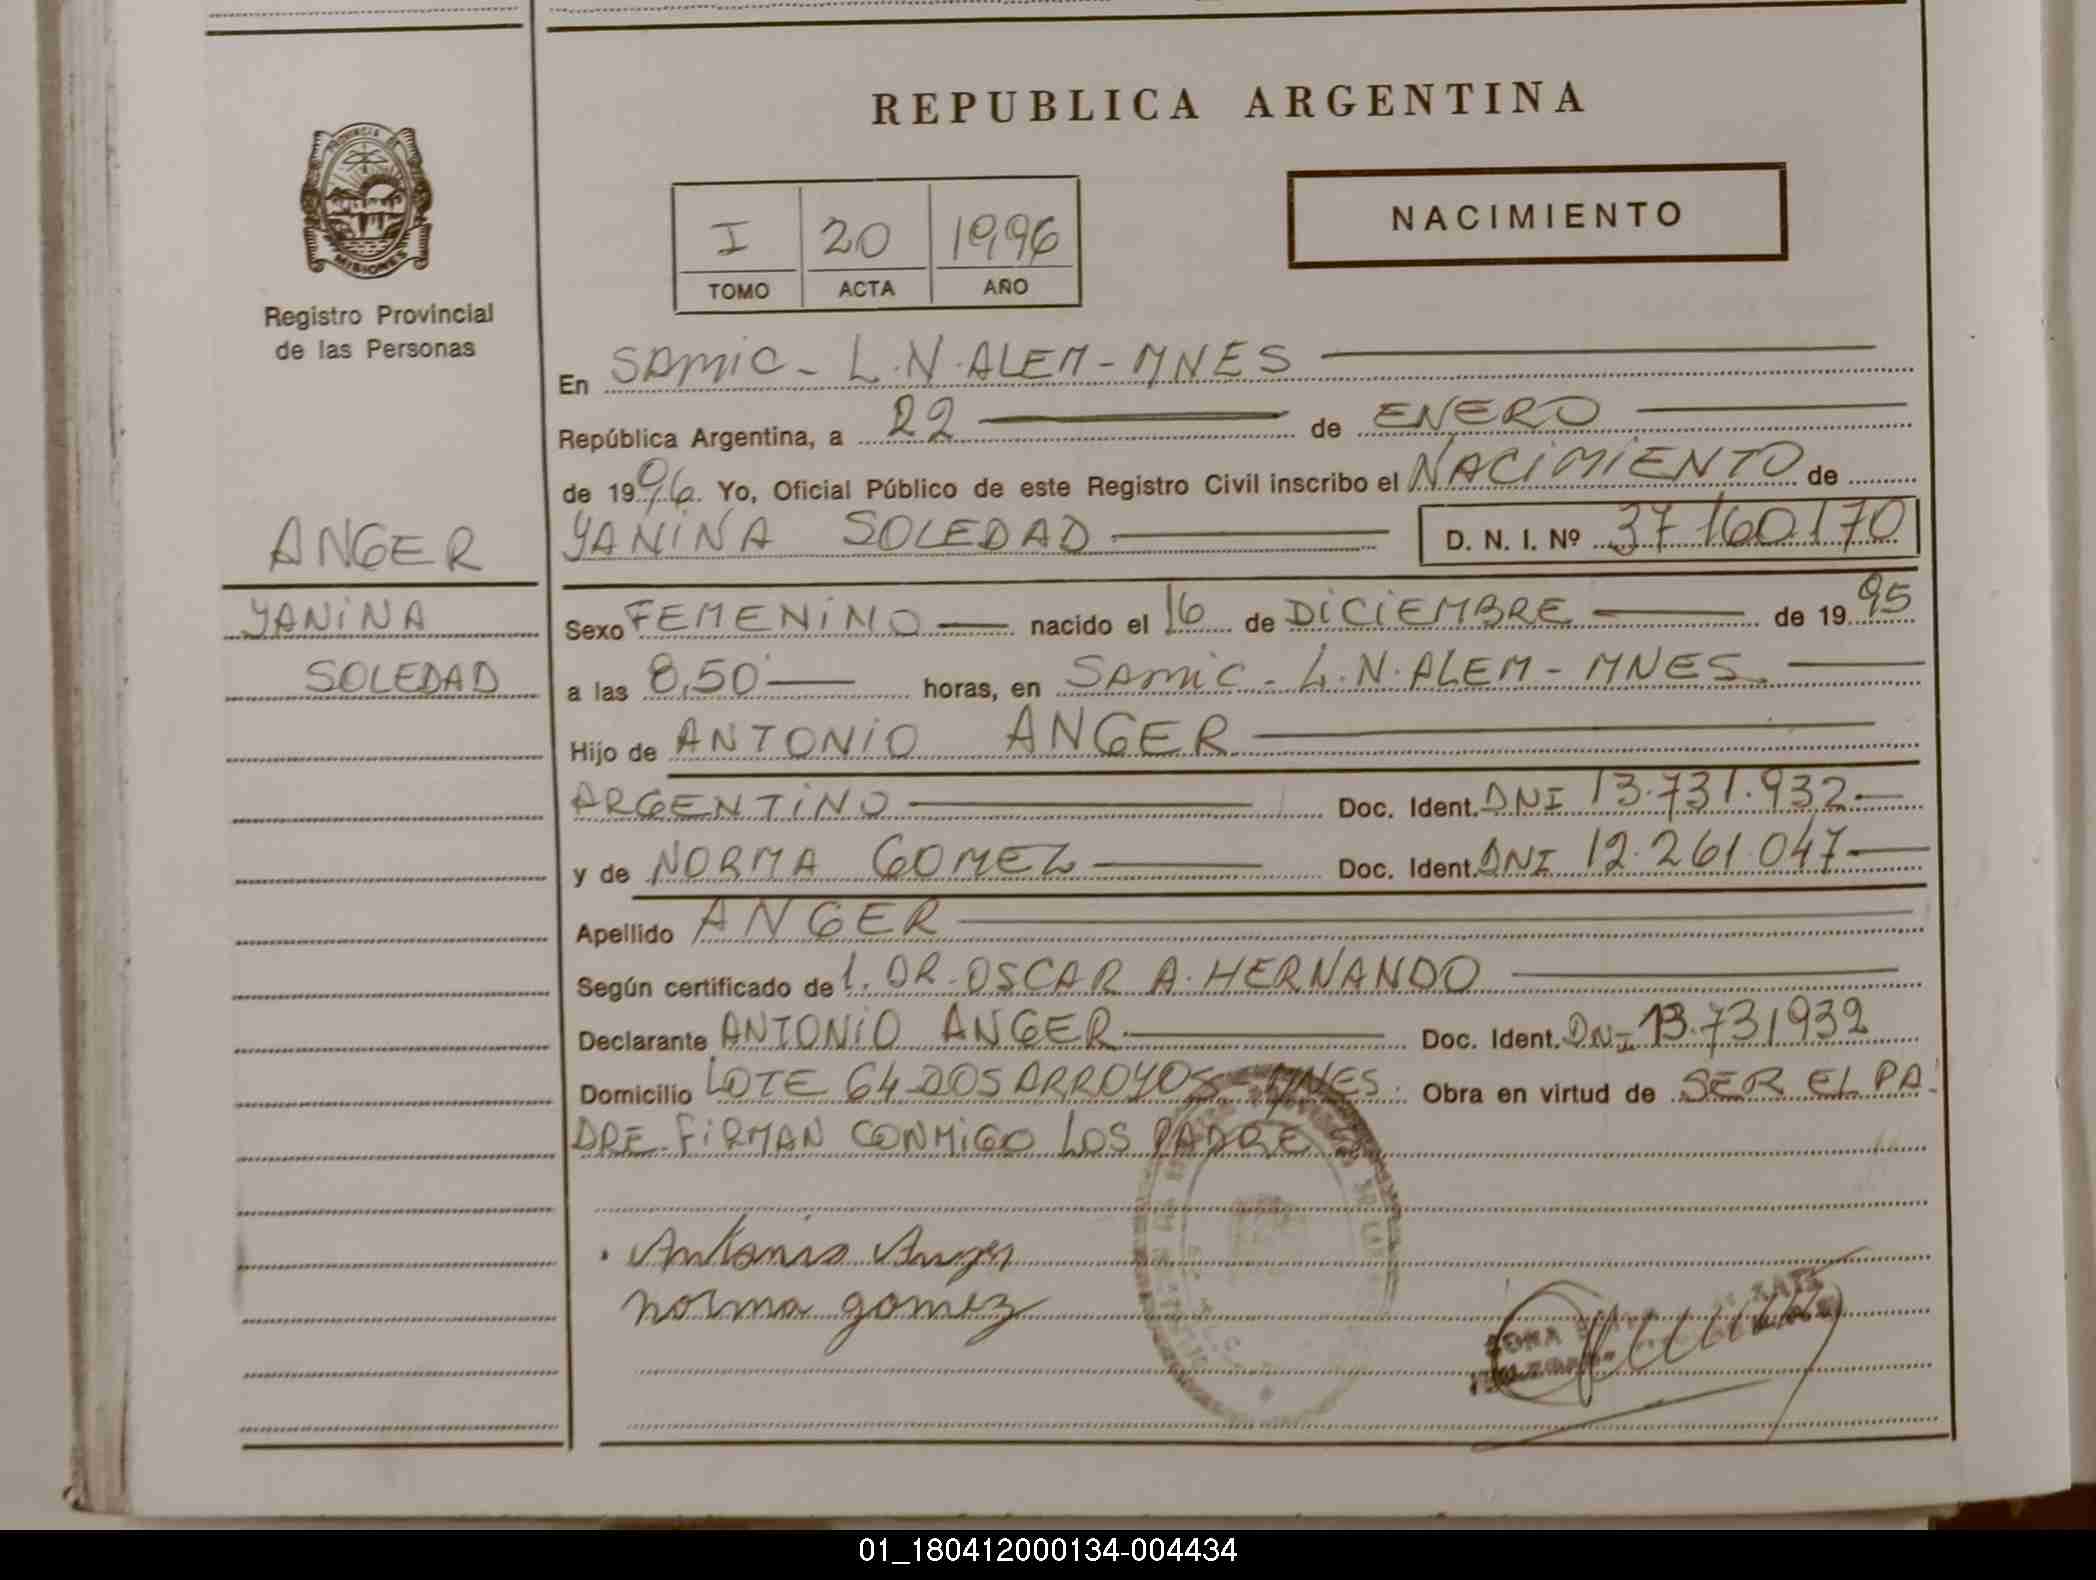 REPUBLICA ARGENTINA
PROVINCIA DE
MISIONES
Registro Provincial
de las Personas
I 20 1996
TOMO ACTA AÑO
NACIMIENTO
En SAMIC - L.N. ALEM - MNES
República Argentina, a 22 de ENERO
de 1996. Yo, Oficial Público de este Registro Civil inscribo el NACIMIENTO de
YANINA SOLEDAD D. N. I. Nº 37160170
ANGER
YANINA
SOLEDAD
Sexo FEMENINO nacido el 16 de DICIEMBRE de 1995
a las 8,50 horas, en SAMIC - L.N. ALEM - MNES
Hijo de ANTONIO ANGER
ARGENTINO Doc. Ident. DNI 13.731.932
y de NORMA GOMEZ Doc. Ident. DNI 12.261.047
Apellido ANGER
Según certificado de 1. DR. OSCAR A. HERNANDO
Declarante ANTONIO ANGER Doc. Ident. DNI 13.731932
Domicilio LOTE 64 DOS ARROYOS - MNES. Obra en virtud de SER EL PA-
DRE. FIRMAN CONMIGO LOS PADRE
Antonio Anger
norma gomez
01_180412000134-004434